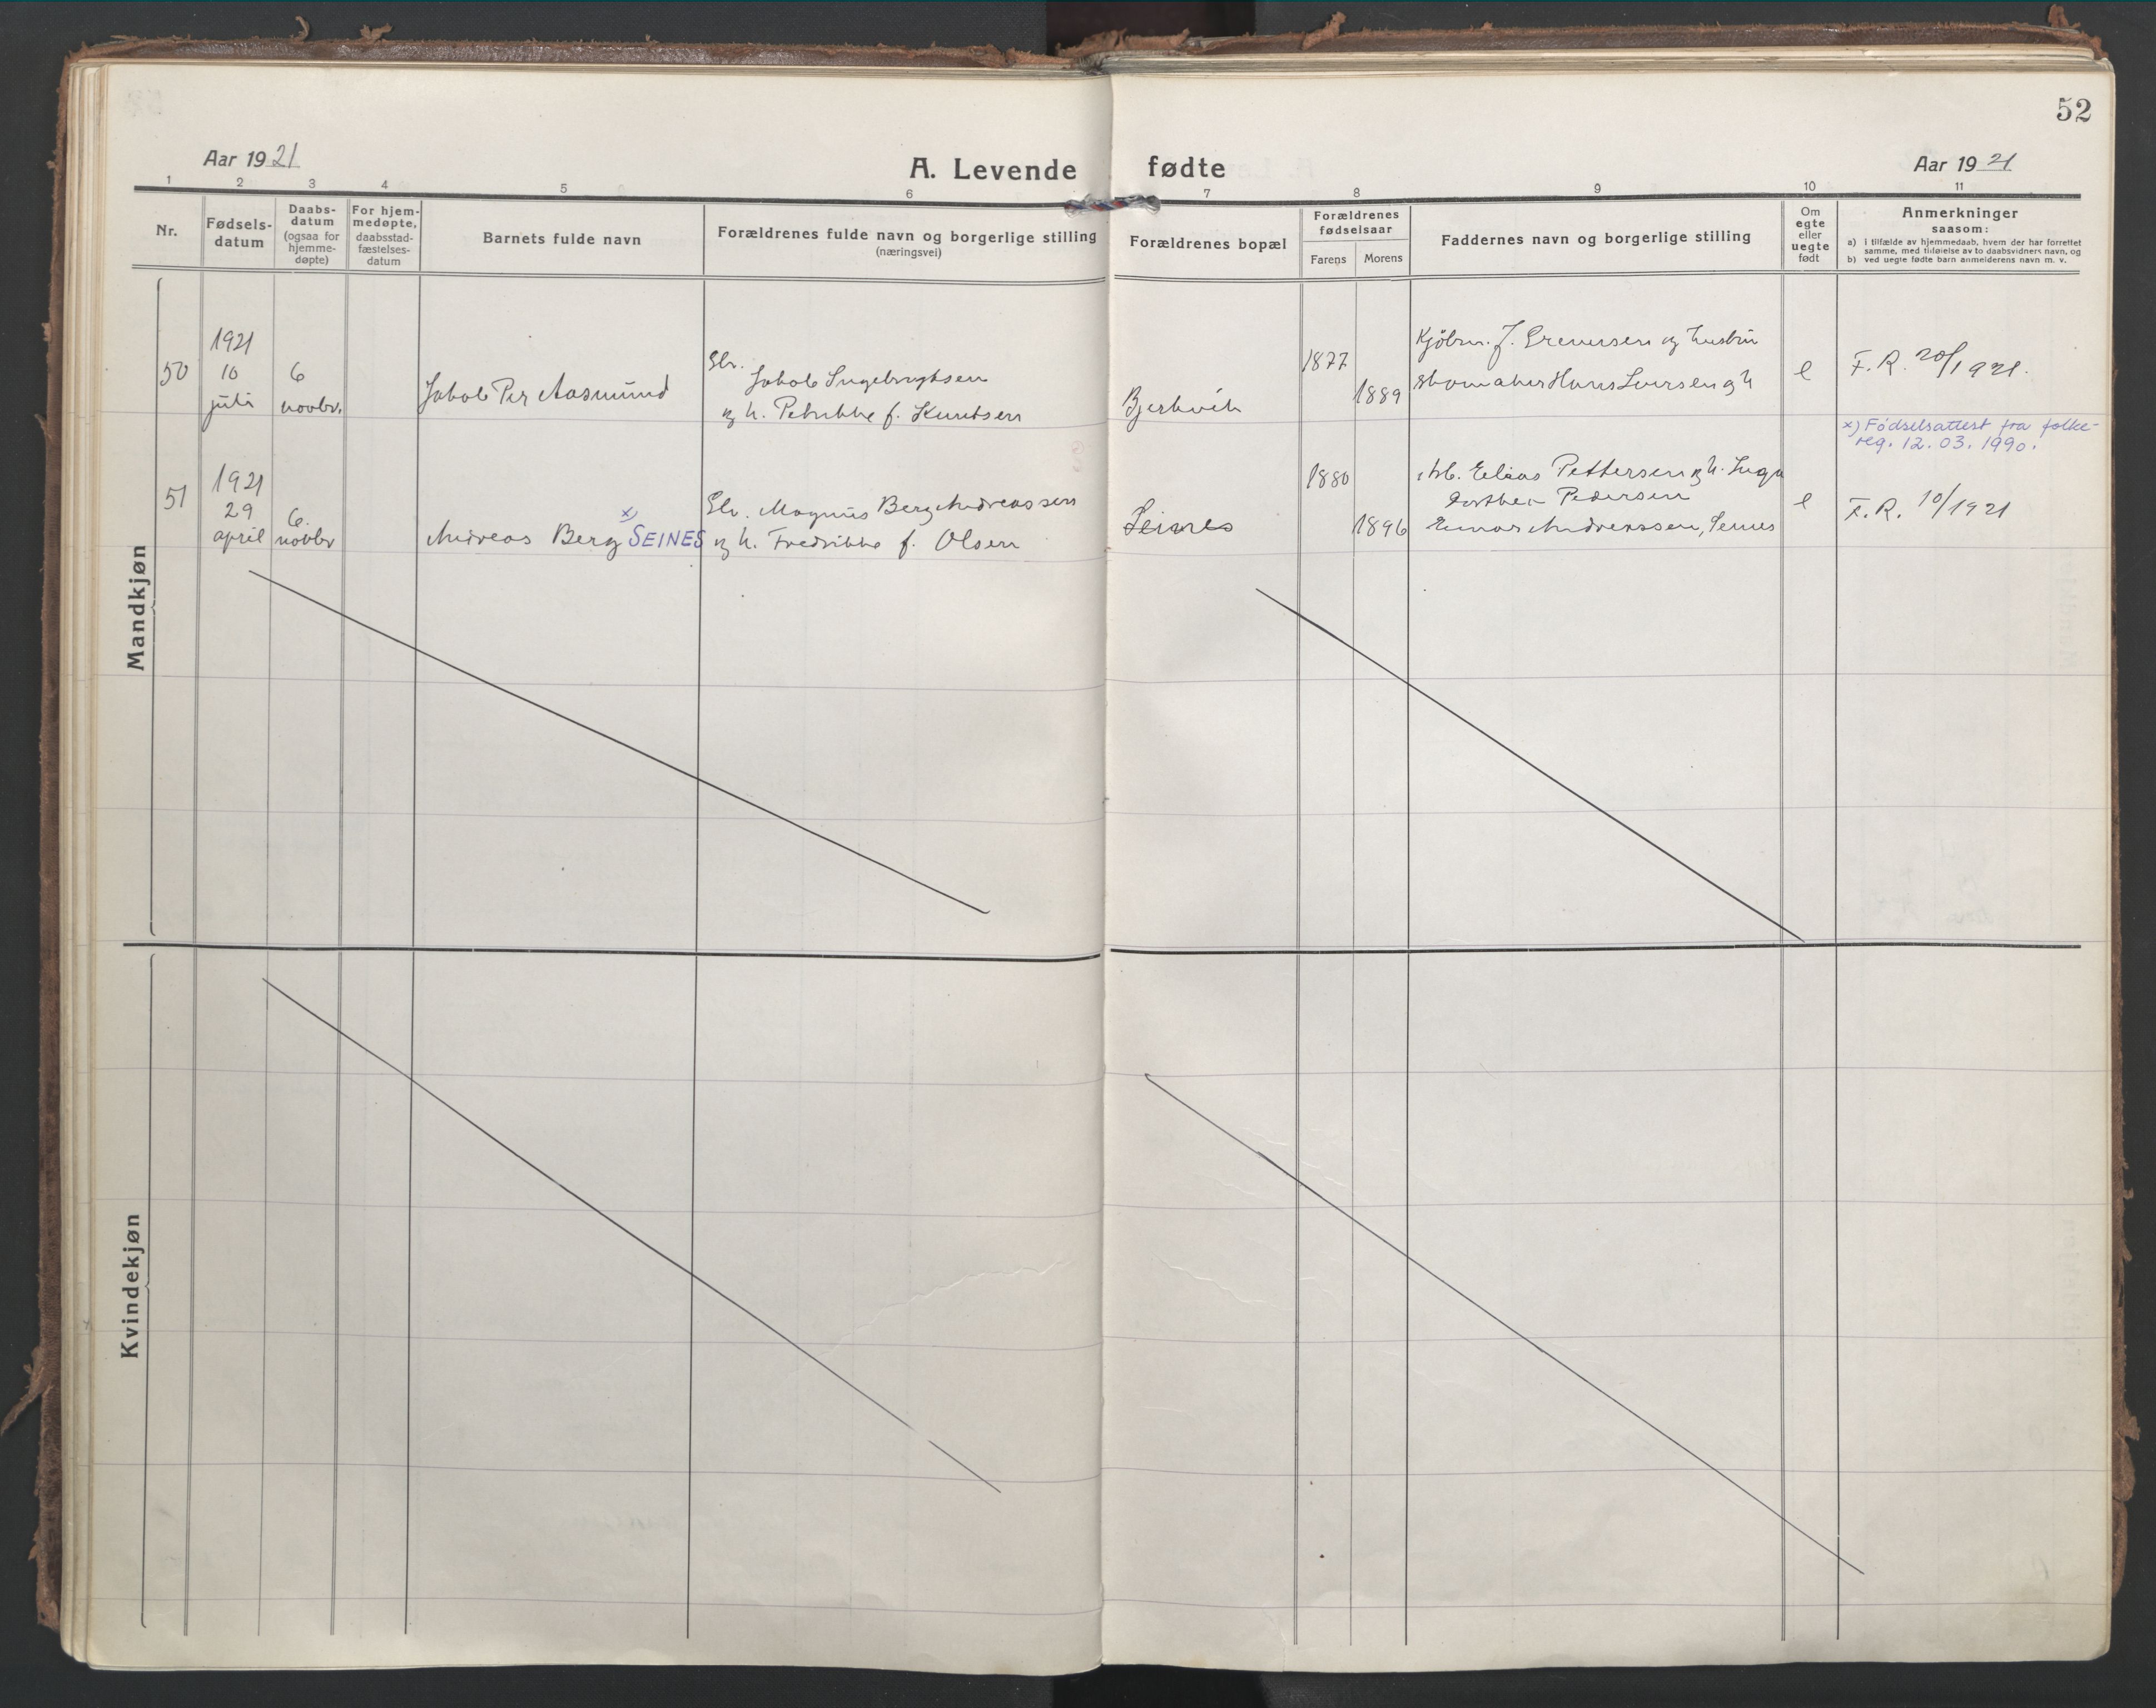 52
Aar 1921
A. Levende fødte
Aar 1921
1 2 3 4 5 6 7 8 9 10 11
Nr.
Fødsels-
datum
Daabs-
datum
(ogsaa for
hjemme-
døpte)
For hjem-
medøpte,
daabsstad-
fæstelses-
datum
Barnets fulde navn
Forældrenes fulde navn og borgerlige stilling
(næringsvei)
Forældrenes bopæl
Forældrenes
fødselsaar
Farens
Morens
Faddernes navn og borgerlige stilling
Om
egte
eller
uegte
født
Anmerkninger
saasom:
a) i tilfælde av hjemmedaab, hvem der har forrettet
samme, med tilføielse av to daabsvidners navn, og
b) ved uegte fødte barn anmelderens navn m. v.
Mandkjøn
50
1921
10
juli
6
novbr.
Jakob Per Aasmund
Jakob Ingebrigtsen
og h. Petrikke f. Knutsen
Bjerkvik
1877
1889
Kjøbm. J. og hustru
skomaker Hans Iversen og h
e
F. R. 20/1 921.
51
1921
29
april
6
novbr
Andreas Berg x) SEINES
Magnus Berg Andreassen
og h. Fredrikke f. Olsen
Seines
1880
1896
Elias Pettersen og h. Inga
Dorthea Pedersen
Einar Andreassen, Seines
e
x) Fødselsattest fra folke-
reg. 12.03.1990.
F. R. 10/1921
Kvindekjøn